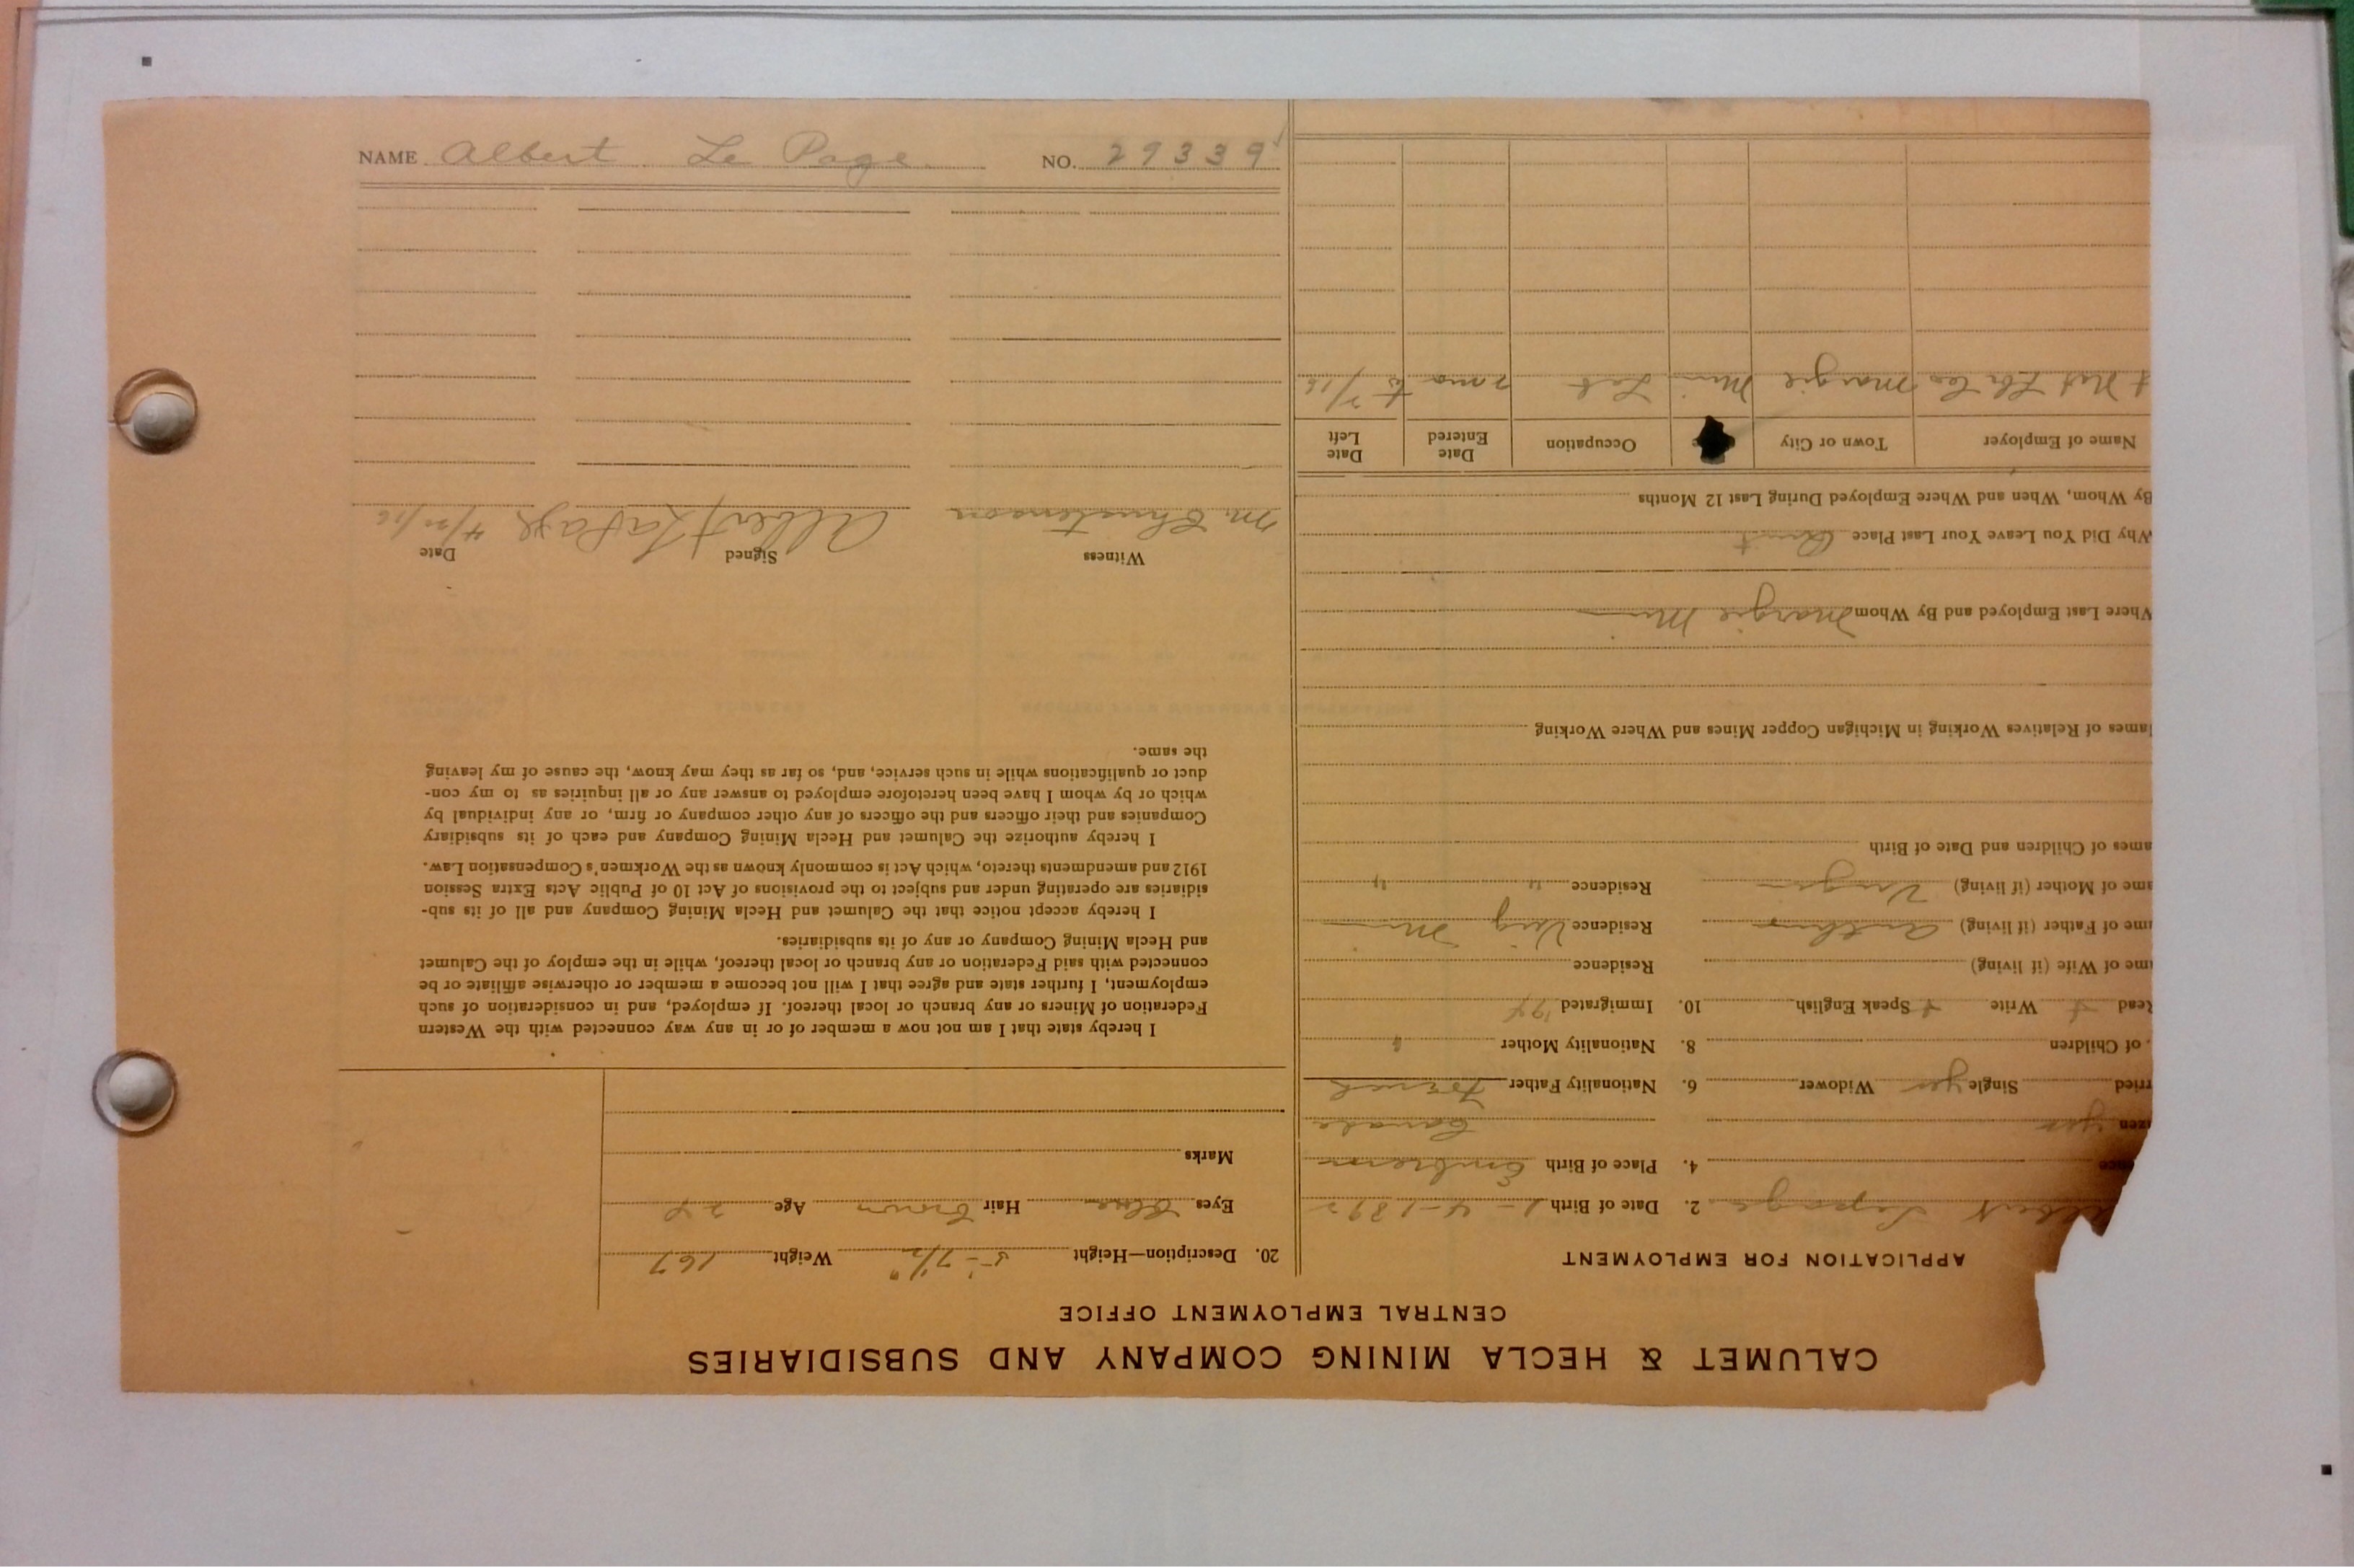 CALUMET & HECLA MINING COMPANY AND SUBSIDIARIES
CENTRAL EMPLOYMENT OFFICE
APPLICATION FOR EMPLOYMENT
Albert Lepage 2. Date of Birth 1-4-1892
4. Place of Birth
yes Canada
Single yes Widower 6. Nationality Father French
of Children 8. Nationality Mother "
Read Write Speak English 10. Immigrated '94
me of Wife (if living) Residence
me of Father (if living) Residence
ame of Mother (if living) Residence " "
ames of Children and Date of Birth
ames of Relatives Working in Michigan Copper Mines and Where Working
Where Last Employed and By Whom Margie Mi
Why Did You Leave Your Last Place Quit
By Whom, When and Where Employed During Last 12 Months
Name of Employer Town or City Occupation Date Entered Date Left
Margie Mi Lab 2 mo
20. Description—Height 5'-7 1/2" Weight 167
Eyes Blue Hair Brown Age 24
Marks
I hereby state that I am not now a member of or in any way connected with the Western
Federation of Miners or any branch or local thereof. If employed, and in consideration of such
employment, I further state and agree that I will not become a member or otherwise affiliate or be
connected with said Federation or any branch or local thereof, while in the employ of the Calumet
and Hecla Mining Company or any of its subsidiaries.
I hereby accept notice that the Calumet and Hecla Mining Company and all of its sub-
sidiaries are operating under and subject to the provisions of Act 10 of Public Acts Extra Session
1912 and amendments thereto, which Act is commonly known as the Workmen's Compensation Law.
I hereby authorize the Calumet and Hecla Mining Company and each of its subsidiary
Companies and their officers and the officers of any other company or firm, or any individual by
which or by whom I have been heretofore employed to answer any or all inquiries as to my con-
duct or qualifications while in such service, and, so far as they may know, the cause of my leaving
the same.
Witness Signed Date
M. Christenson Albert LaPage
NAME Albert Le Page NO. 29339